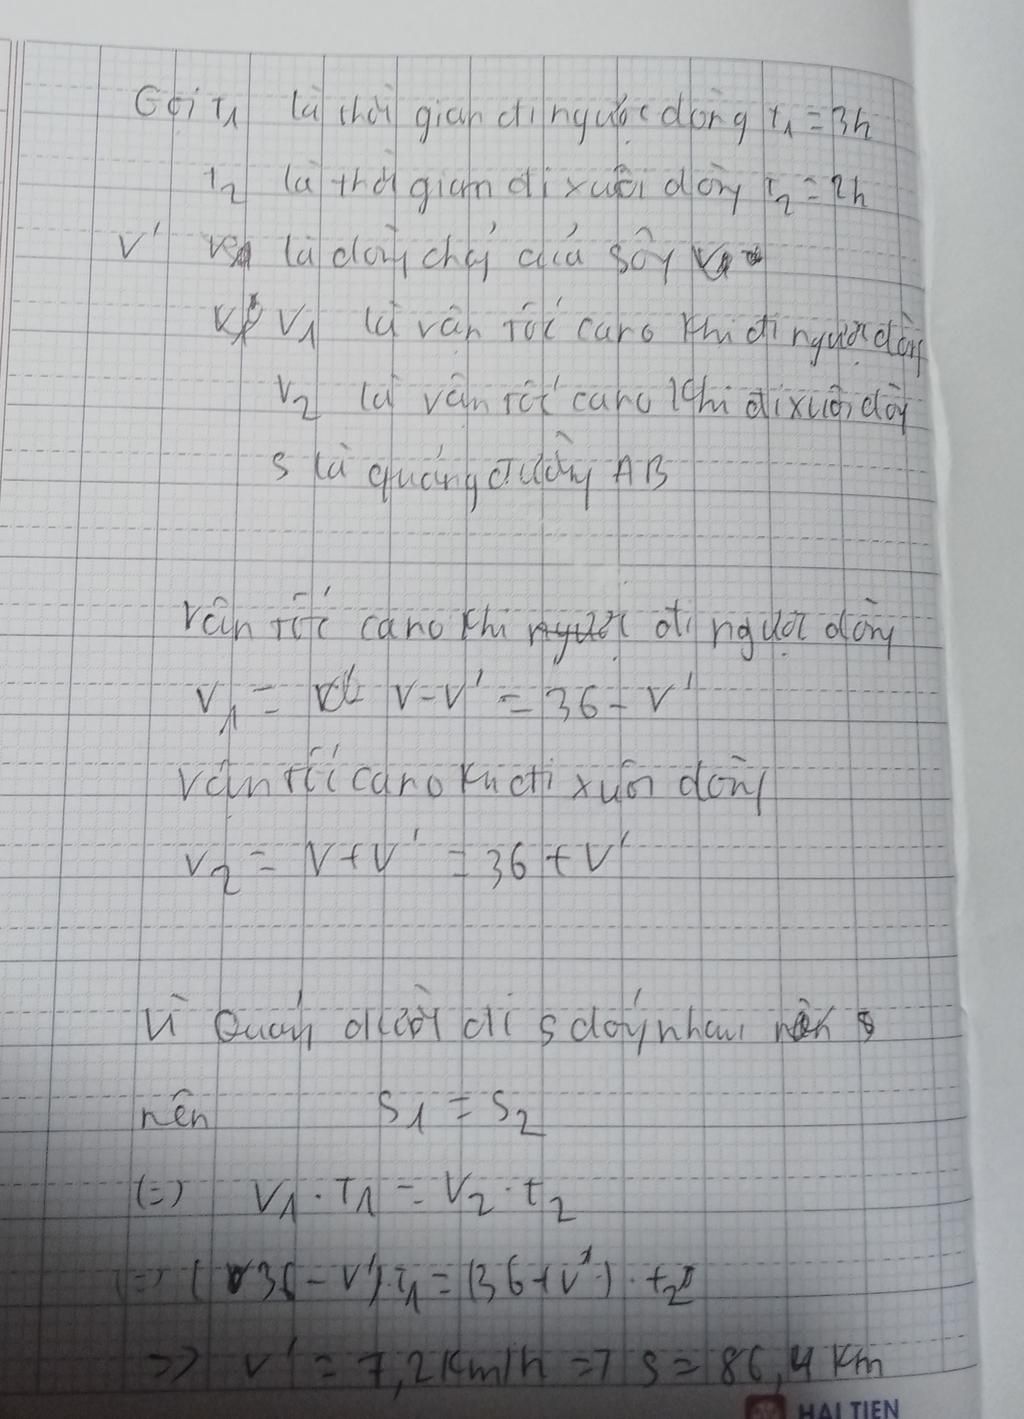 Gọi t₁ là thời gian đi ngược dòng t₁ = 3h
t₂ là thời gian đi xuôi dòng t₂ = 2h
v' là dòng chảy của sông
v₁ là vận tốc cano khi đi ngược dòng
v₂ là vận tốc cano khi đi xuôi dòng
s là quãng đường AB
vận tốc cano khi đi ngược dòng
v₁ = v - v' = 36 - v'
vận tốc cano khi đi xuôi dòng
v₂ = v + v' = 36 + v'
Vì Quãng đường đi s nhau
nên s₁ = s₂
(=) v₁ . t₁ = v₂ . t₂
(=) (36 - v').t₁ = (36 + v') . t₂
=> v' = 7,2 km/h => s = 86,4 km
HẢI TIẾN